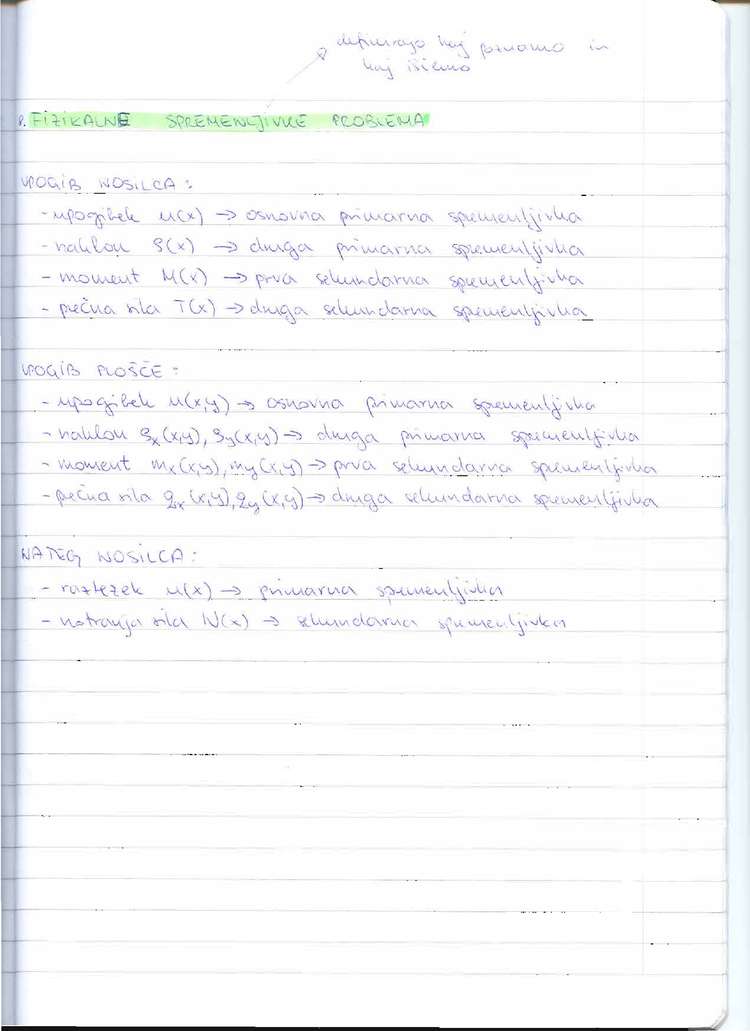 definirajo kaj poznamo in
kaj iščemo
8. FIZIKALNE SPREMENLJIVKE PROBLEMA
UPOGIB NOSILCA:
- upogibek u(x) → osnovna primarna spremenljivka
- naklon φ(x) → druga primarna spremenljivka
- moment M(x) → prva sekundarna spremenljivka
- prečna sila T(x) → druga sekundarna spremenljivka
UPOGIB PLOŠČE:
- upogibek u(x,y) → osnovna primarna spremenljivka
- naklon φx(x,y), φy(x,y) → druga primarna spremenljivka
- moment mx(x,y), my(x,y) → prva sekundarna spremenljivka
- prečna sila qx(x,y), qy(x,y) → druga sekundarna spremenljivka
NATEG NOSILCA:
- raztezek u(x) → primarna spremenljivka
- notranja sila N(x) → sekundarna spremenljivka